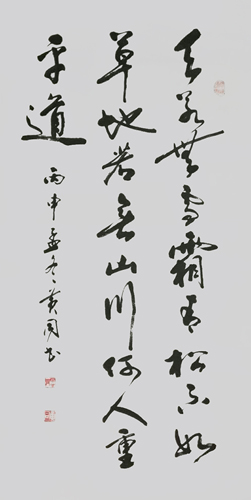 天若無雪霜青松不如
草地若無山川何人重
平道
丙申孟冬黄闰书